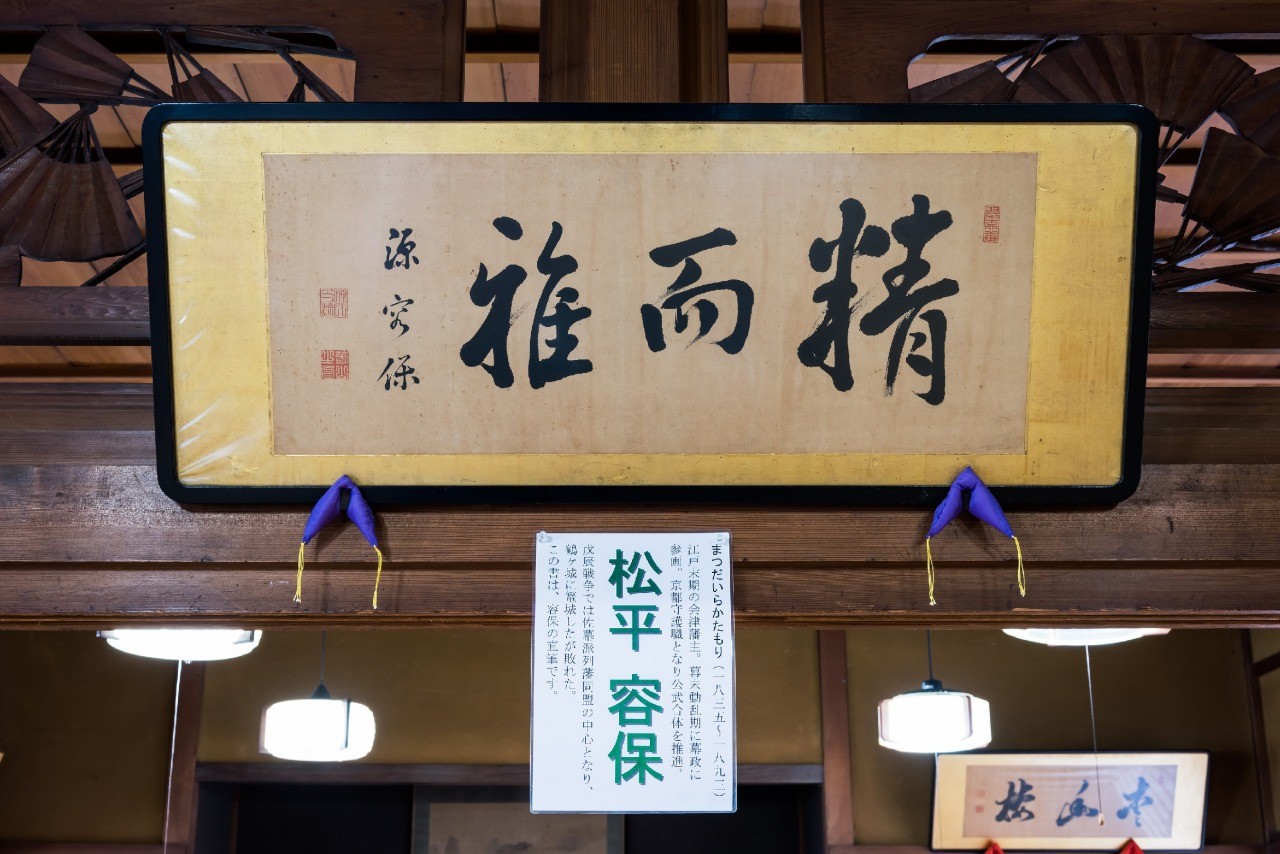 精而雅
源容保
まつだいらかたもり(一八三五〜一八九三)
江戸末期の会津藩主。幕末動乱期に幕政に
参画。京都守護職となり公武合体を推進。
松平 容保
戊辰戦争では佐幕派列藩同盟の中心となり、
鶴ヶ城に篭城したが敗れた。
この書は、容保の直筆です。